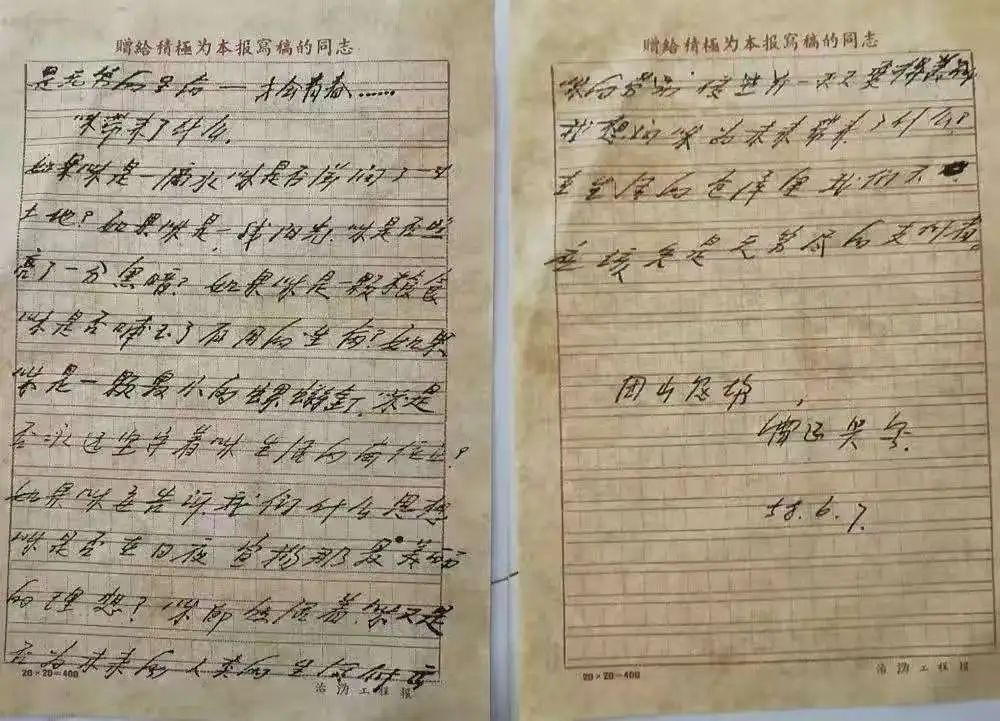 赠给積極为本报寫稿的同志
才会青春……
你带来了什么.
如果你是一滴水你是否滋润了一寸
土地？如果你是一线阳光.你是否照
亮了一分黑暗？如果你是一颗粮食
你是否哺育了有用的生命？如果
你是一颗最小的螺丝钉.你是
否永远坚守着你生活的岗位？
如果你要告诉我们什么思想
你是否在日夜宣扬那最美丽
的理想？你既然活着.你又是
否为未来的人类的生活付出
20×20=400
治沩工程报
赠给積極为本报寫稿的同志
你的劳动使世界一天天变得美丽
我想问你为未来带来了什么？
在生活的仓库里我们不
应该只是无穷尽的支付者.
58.6.7.
20×20=400
治沩工程报